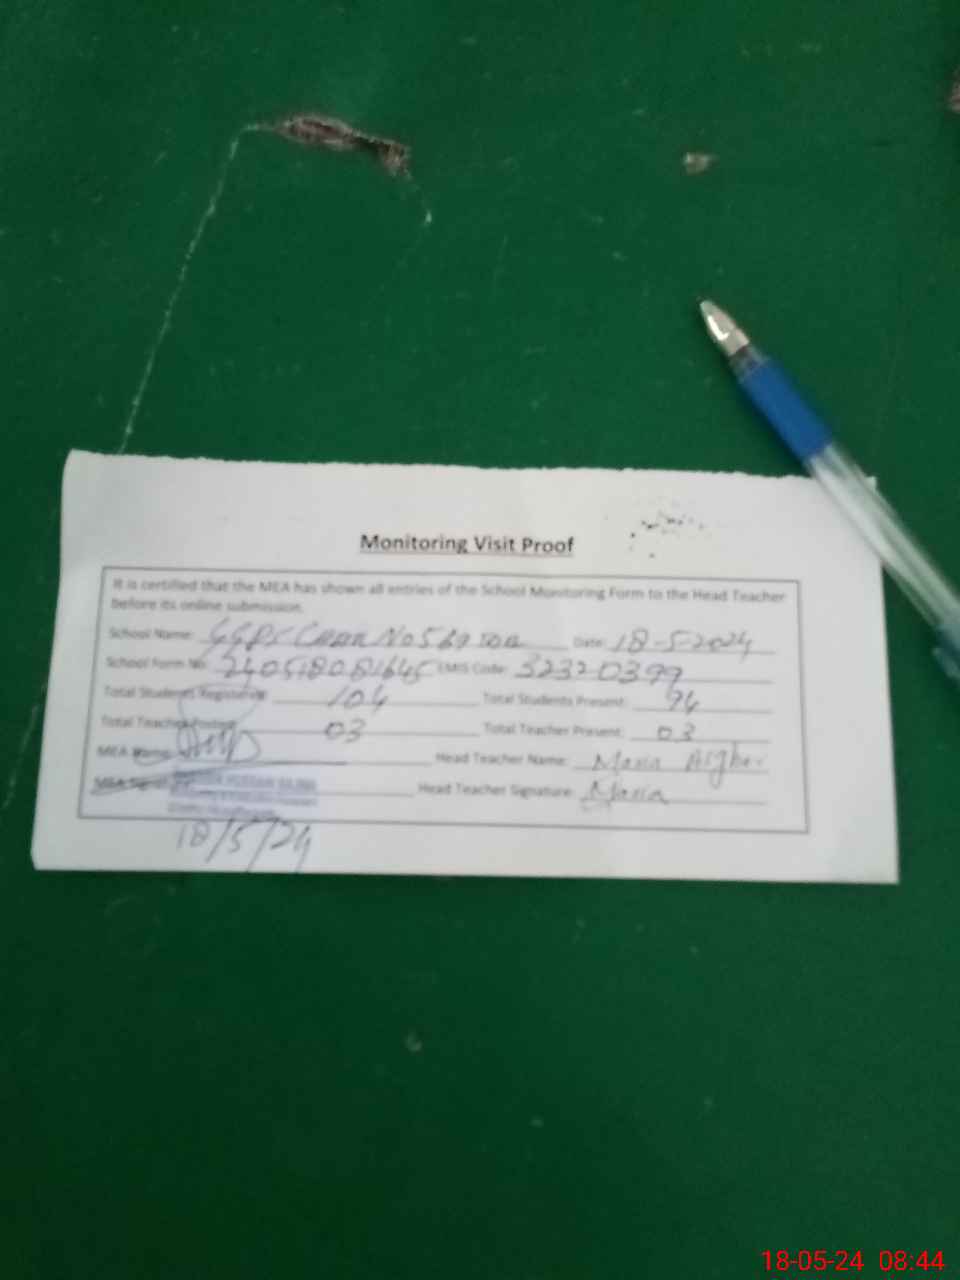 Monitoring Visit Proof
It is certified that the MEA has shown all entries of the School Monitoring Form to the Head Teacher
before its online submission.
School Name: GGPS Chak No 569 Date: 18-5-2024
School Form No: 240518081645 EMIS Code: 32320399
Total Students Registered: 104 Total Students Present: 94
Total Teacher Posted: 03 Total Teacher Present: 03
MEA Name: Head Teacher Name: Maria Asghar
MEA Signature: Head Teacher Signature: Maria
18/5/24
18-05-24 08:44